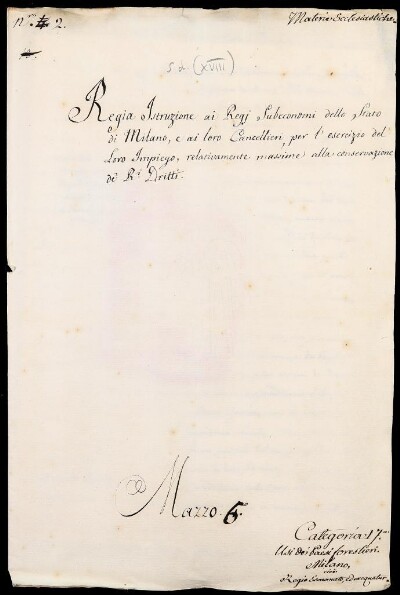 N.ro 2.
Materie Ecclesiastiche.
s. d. (XVIII)
Regia Istruzione ai Regj Subeconomi dello Stato
di Milano, e ai loro Cancellieri, per l'esercizio del
loro Impiego, relativamente massime alla conservazione
de' R.i Dritti.
Mazzo. 6.
Categoria 17.ma
Usi dei Paesi forestieri.
Milano,
Regio Economato, ed exequatur.